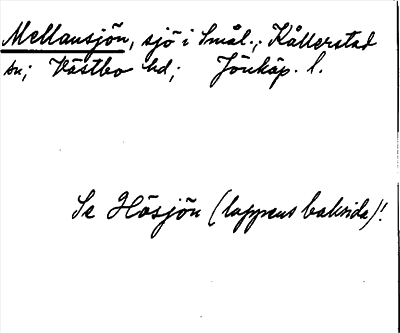 Mellansjön, sjö i Smål.; Kållerstad
sn; Västbo hd; Jönköp. l.
Se Hösjön (lappens baksida)!